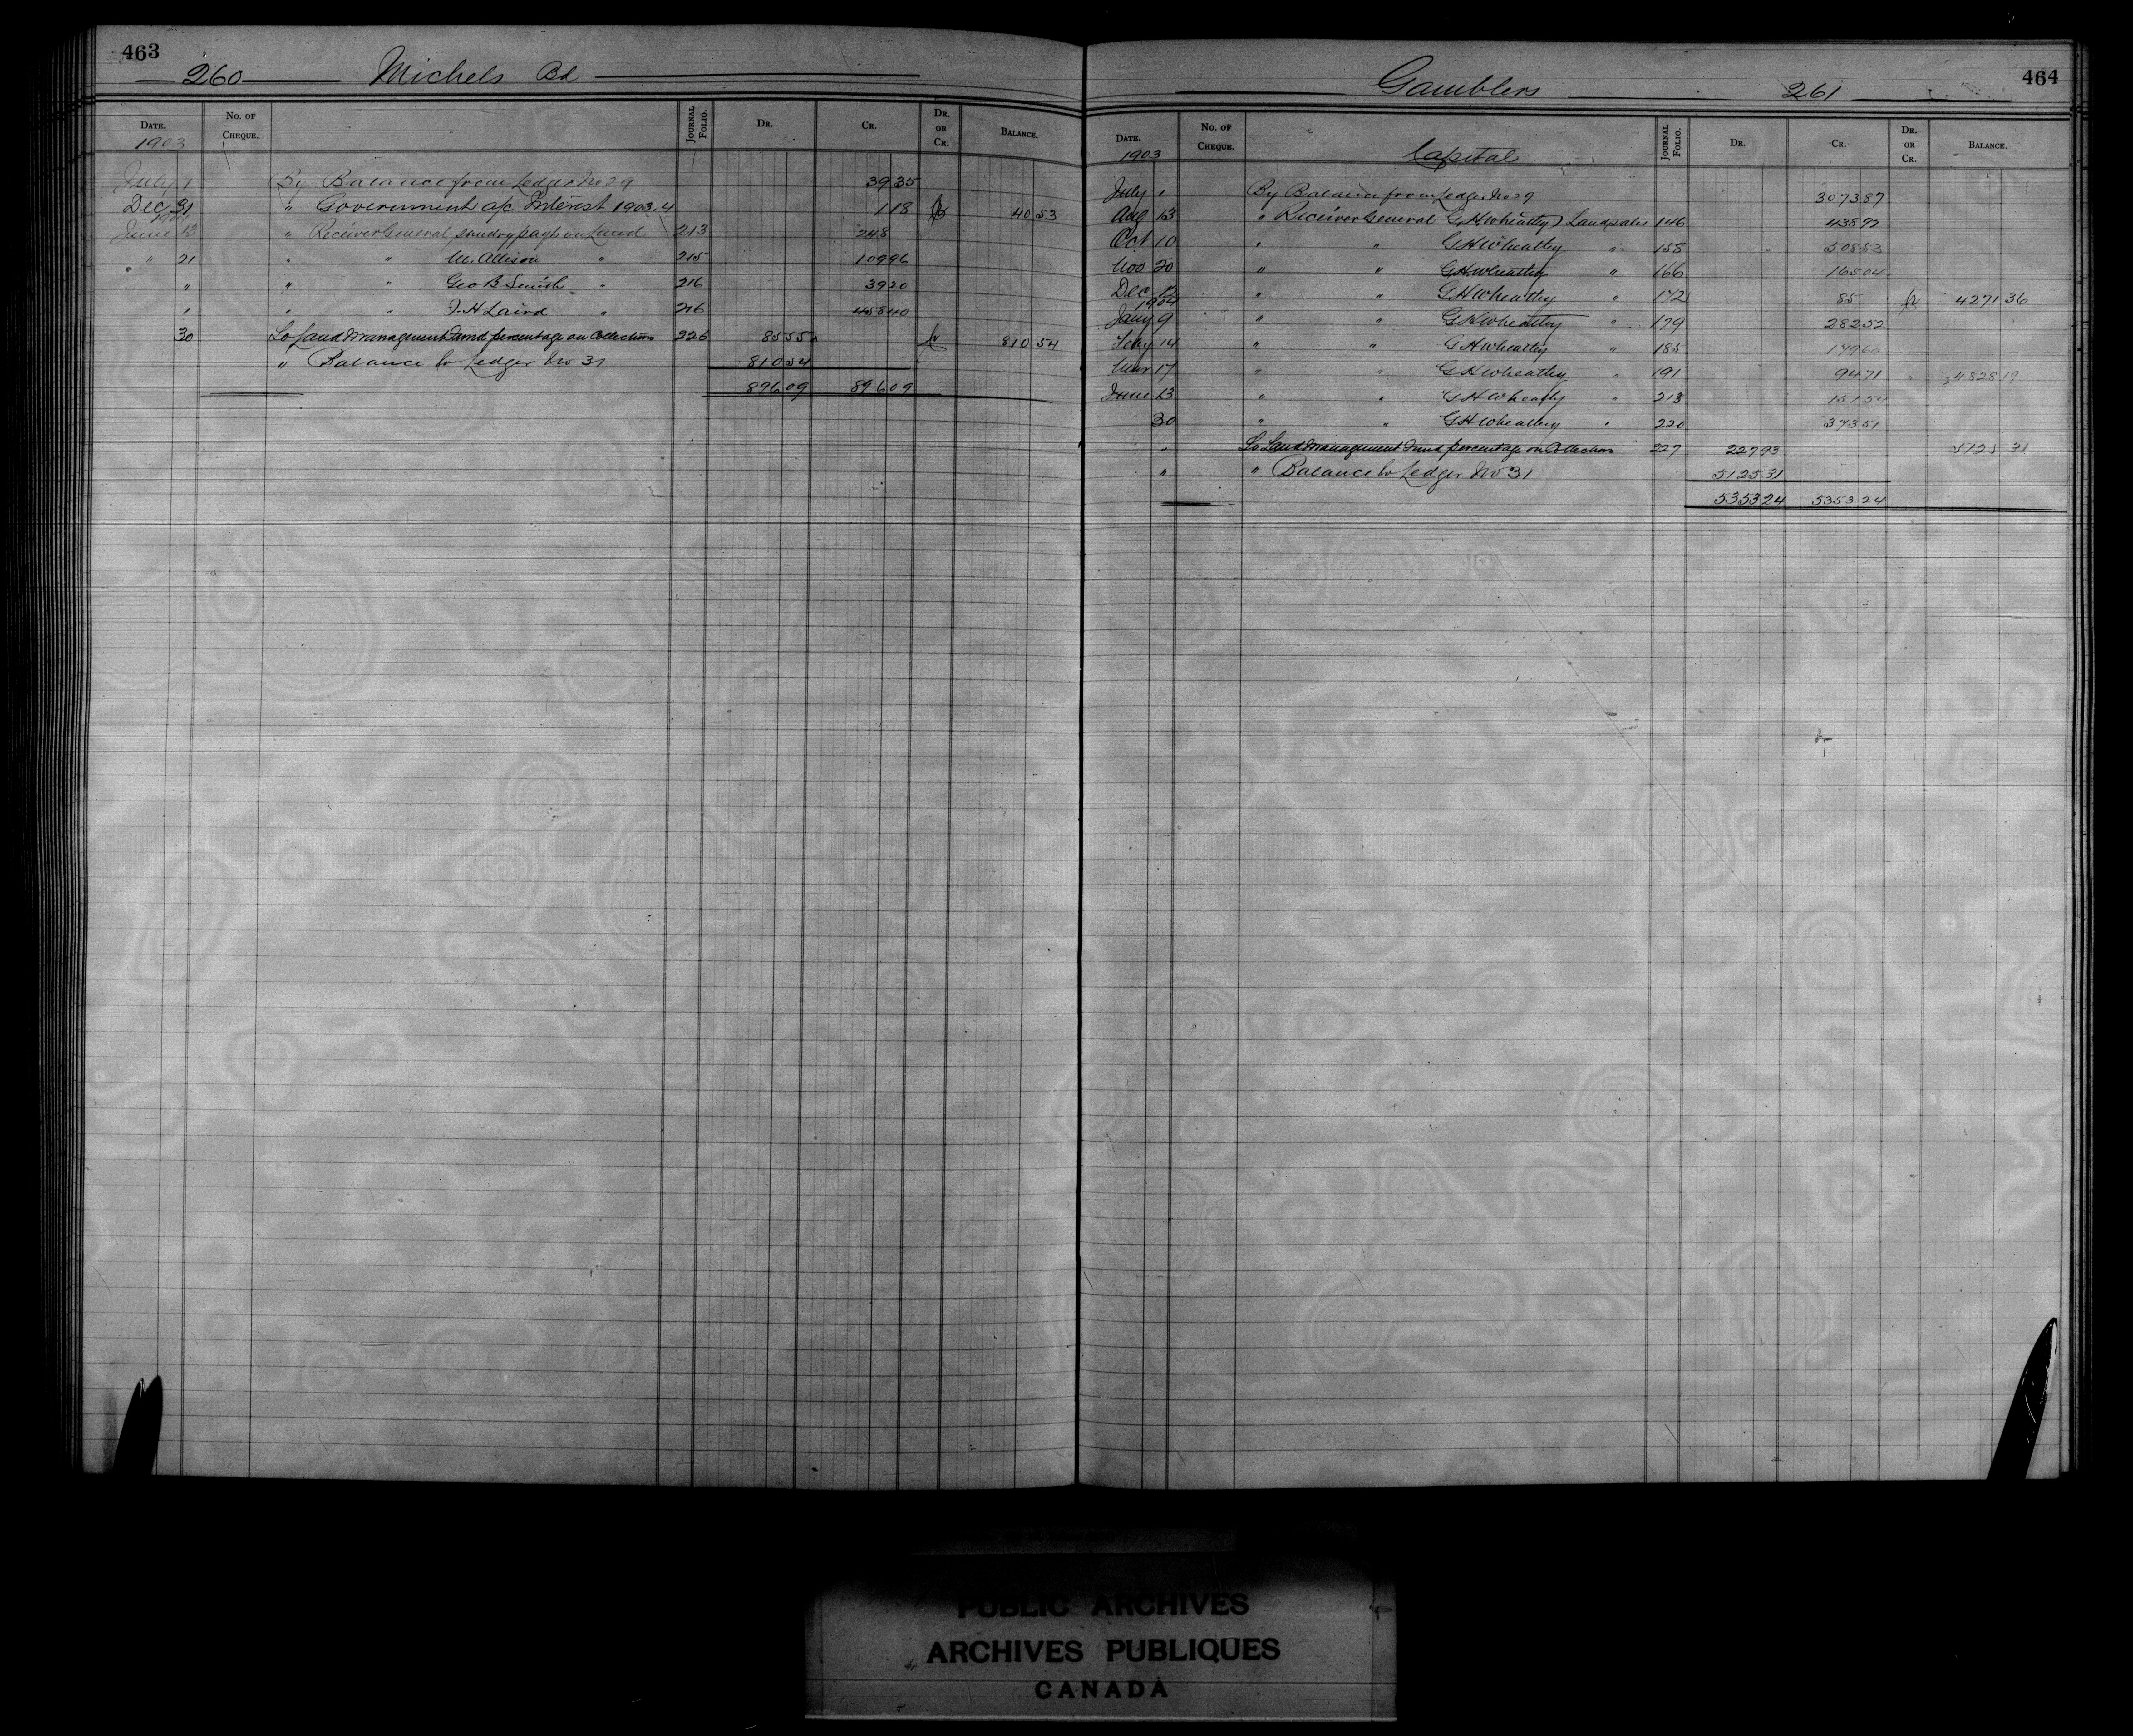 463
260 Michels Bd
DATE. No. OF CHEQUE. JOURNAL FOLIO. DR. CR. DR. OR CR. BALANCE.
1903
July 1 By Balance from Ledger No 29 39 35
Dec 31 " Government a/c Interest 1903.4 1 18 Cr 40 53
1904
June 13 " Receiver General sundry payts on Land 213 248
" 21 " " M. Allison " 215 109 96
" " " Geo B Smith " 216 39 20
" " " J. H Laird " 216 458 40
30 To Land Management Fund percentage on Collections 226 85 55 Cr 810 54
" Balance to Ledger No 31 810 54
896 09 896 09
Gamblers 261
464
DATE. No. OF CHEQUE. JOURNAL FOLIO. DR. CR. DR. OR CR. BALANCE.
1903 Capital
July 1 By Balance from Ledger No 29 3073 87
Aug 13 " Receiver General (G H Wheatley) Land sales 146 438 92
Oct 10 " " G H Wheatley " 158 508 53
Nov 20 " " G H Wheatley " 166 165 04
Dec 12 " " G H Wheatley " 172 85 Cr 4271 36
1904
Jany 9 " " G H Wheatley " 179 282 52
Feby 14 " " G H Wheatley " 185 179 60
Mar 17 " " G H Wheatley " 191 94 71 " 4828 19
June 13 " " G H Wheatley " 213 151 54
30 " " G H Wheatley " 220 373 51
" To Land Management Fund percentage on Collections 227 227 93 5125 31
" " Balance to Ledger No 31 5125 31
5353 24 5353 24
PUBLIC ARCHIVES
ARCHIVES PUBLIQUES
CANADA